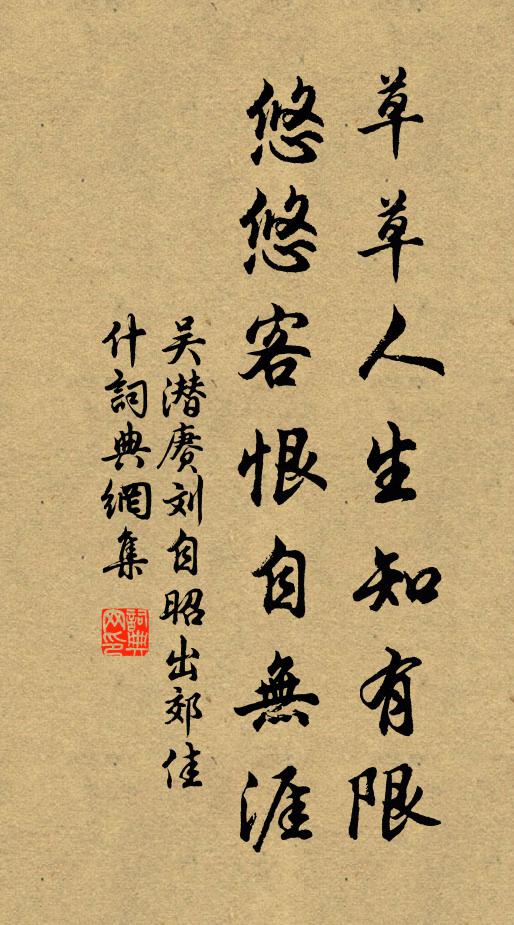 草草人生知有限
悠悠客恨自無涯
吴潜赓刘自昭出郊佳
什詞典網集
詞典网印